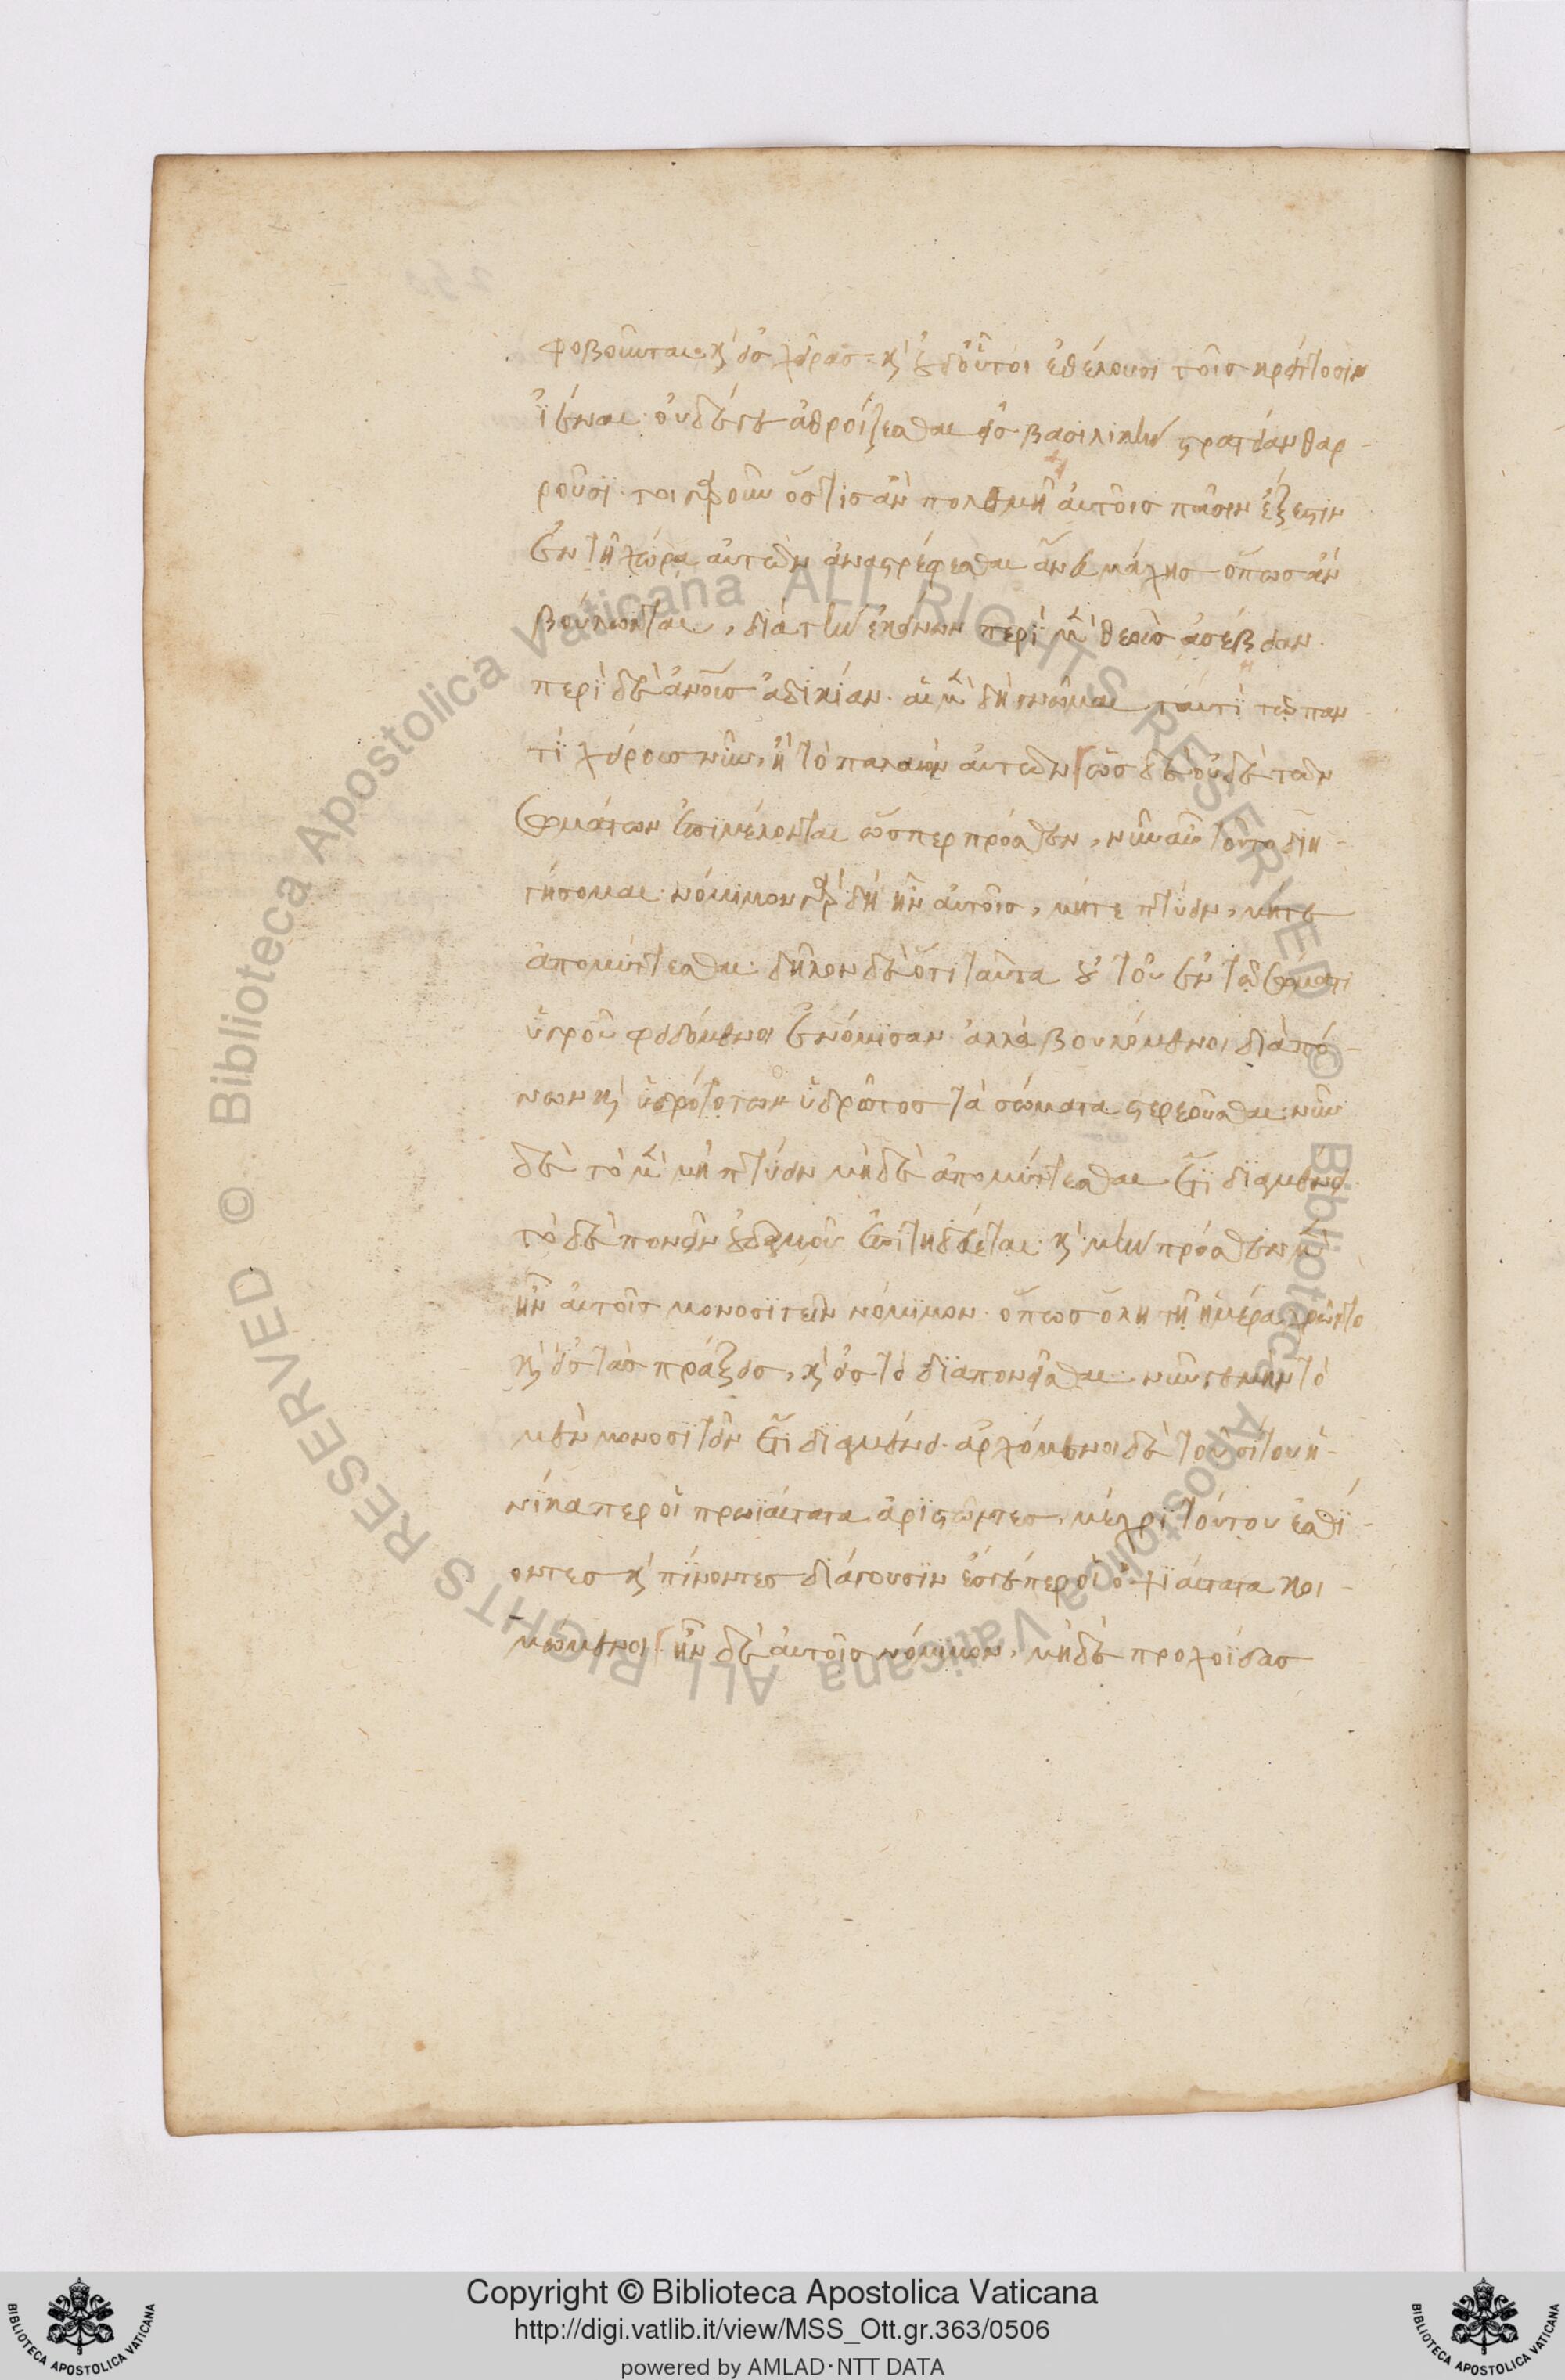 φοβοῦνται· κ᾽ εἰς χεῖρας· κ᾽ οὐδ᾽ οὗτοι ἐθέλουσι τοῖς κρείττοσιν
ἰέναι· οὐδέ γε ἀθροίζεσθαι εἰς βασιλικὴν στρατείαν θαρ-
ροῦσι· τοιγαροῦν ὅστις ἂν πολεμῇ αὐτοῖς πᾶσιν ἔξεστιν
ἐν τῇ χώρα αὐτῶν ἀναστρέφεσθαι ἄνευ μάχης ὅπως ἂν
βούλωνται, διὰ τὴν ἐκείνων περὶ μὲν θεοὺς ἀσέβειαν·
περὶ δὲ ἀνους ἀδικίαν· αἱ μὲν δὴ γνῶμαι ταύτη τῷ παν
τὶ χείρους νῦν, ἢ τὸ παλαιὸν αὐτῶν ὡς δὲ οὐδὲ τῶν
σωμάτων ἐπιμέλονται ὥσπερ πρόσθεν, νῦν αὖ τοῦτο διη-
γήσομαι· νόμιμον γὰρ δὴ ἦν αὐτοῖς, μήτε πτύειν, μήτε
ἀπομύττεσθαι· δῆλον δὲ ὅτι ταῦτα οὐ τοῦ ἐν τῷ σώματι
ὑγροῦ φειδόμενοι ἐνόμισαν· ἀλλὰ βουλόμενοι διὰ πό-
νων κ᾽ ἱδρῶτος τὰ σώματα στερεοῦσθαι· νῦν
δὲ τὸ μὲν μὴ πτύειν μηδὲ ἀπομύττεσθαι ἔτι διαμένει·
τὸ δὲ πονεῖν οὐδαμοῦ ἐπιτηδεύεται· κ᾽ μὴν πρόσθεν μὲν
ἦν αὐτοῖς μονοσιτεῖν νόμιμον· ὅπως ὅλη τῇ ἡμέρα χρῷντο
κ᾽ εἰς τὰς πράξεις, κ᾽ εἰς τὸ διαπονεῖσθαι· νῦν γε μὴν τὸ
μὲν μονοσιτεῖν ἔτι διαμένει· ἀρχόμενοι δὲ τοῦ σίτου ἡ-
νίκαπερ οἱ πρωϊαίτατα ἀριστῶντες, μέχρι τούτου ἐσθί-
οντες κ᾽ πίνοντες διάγουσιν ἔστεπερ οἱ ὀψιαίτατα κοι-
μώμενοι ἦν δὲ αὐτοῖς νόμιμον, μηδὲ προχοΐδας
Copyright © Biblioteca Apostolica Vaticana
http://digi.vatlib.it/view/MSS_Ott.gr.363/0506
powered by AMLAD·NTT DATA